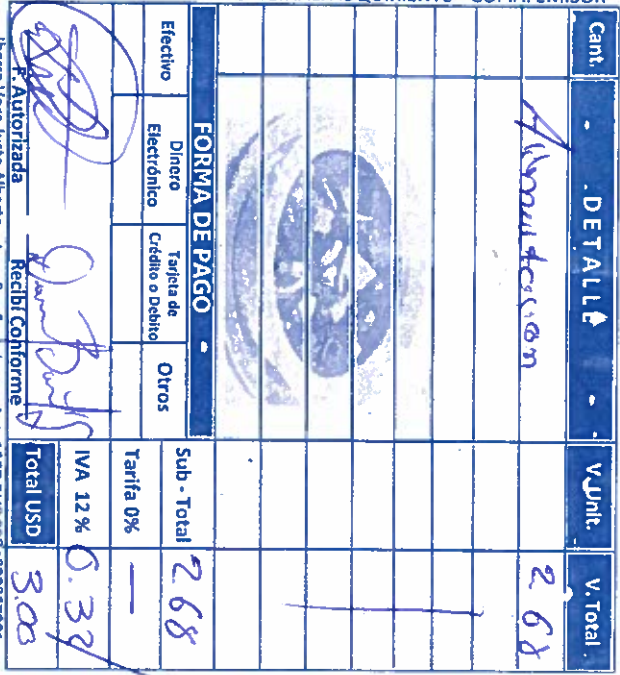 Cant. - DETALLE - V. Unit. V. Total
Alimentación 2 68
- FORMA DE PAGO -
Efectivo Dinero Electrónico Tarjeta de Crédito o Debito Otros
Sub - Total 2 68
Tarifa 0% —
IVA 12% 0.32
Total USD 3.00
F. Autorizada Recibí Conforme